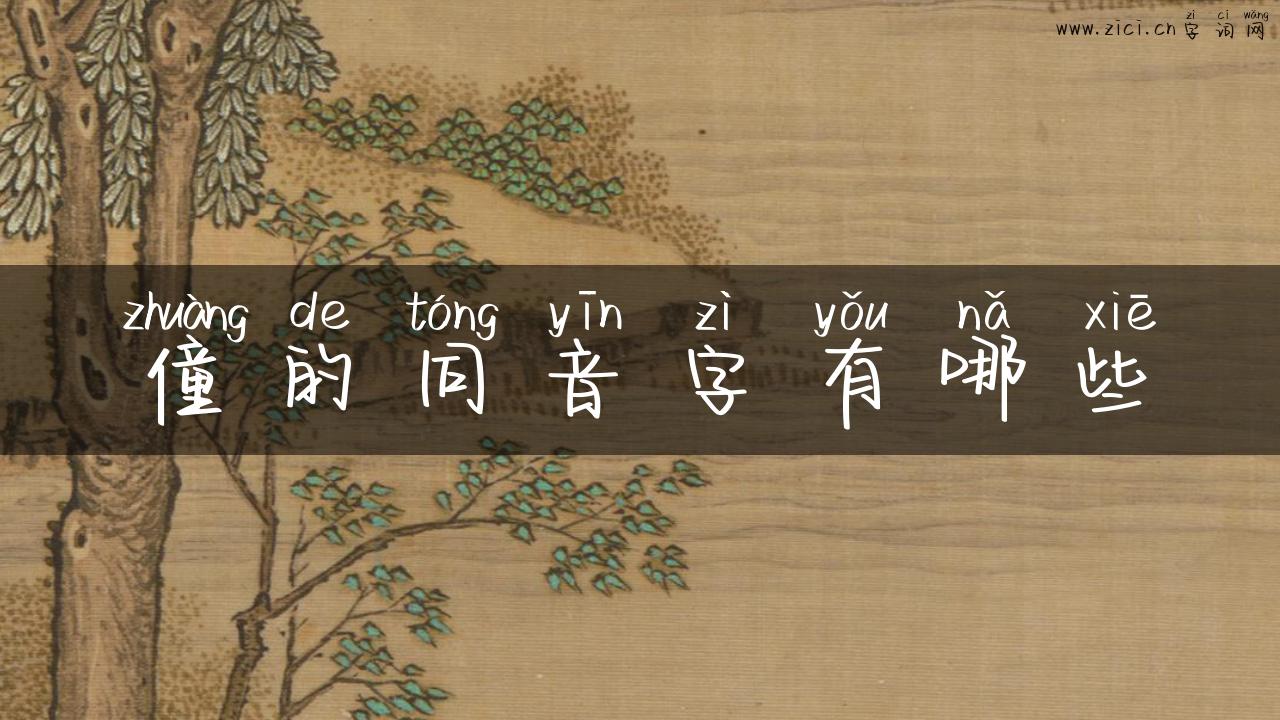 zì cí wǎng
www.zici.cn 字词网
zhuàng de tóng yīn zì yǒu nǎ xiē
僮的同音字有哪些